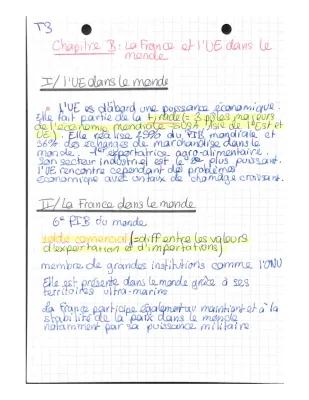 T3
Chapitre B : La France et l'UE dans le
monde
I/ l'UE dans le monde
L'UE es d'abord une puissance économique.
Elle fait partie de la triade (= 3 pôles majeurs
de l'économie mondiale Asie de l'Est et
UE). Elle réalise 25% du PIB mondiale et
36% des échanges de marchandise dans le
monde. 1ère exportatrice agro-alimentaire.
Son secteur industriel est le plus puissant.
l'UE rencontre cependant des problèmes
économique avec un taux de chômage croissant.
II/ La France dans le monde
6e PIB du monde
solde comercial (= diff entre les valeurs
d'exportation et d'importations)
membre de grandes institutions comme l'ONU
Elle est présente dans le monde grâce à ses
territoires ultra-marins
La France participe également au maintient et à la
stabilité de la paix dans le monde
notamment par sa puissance militaire